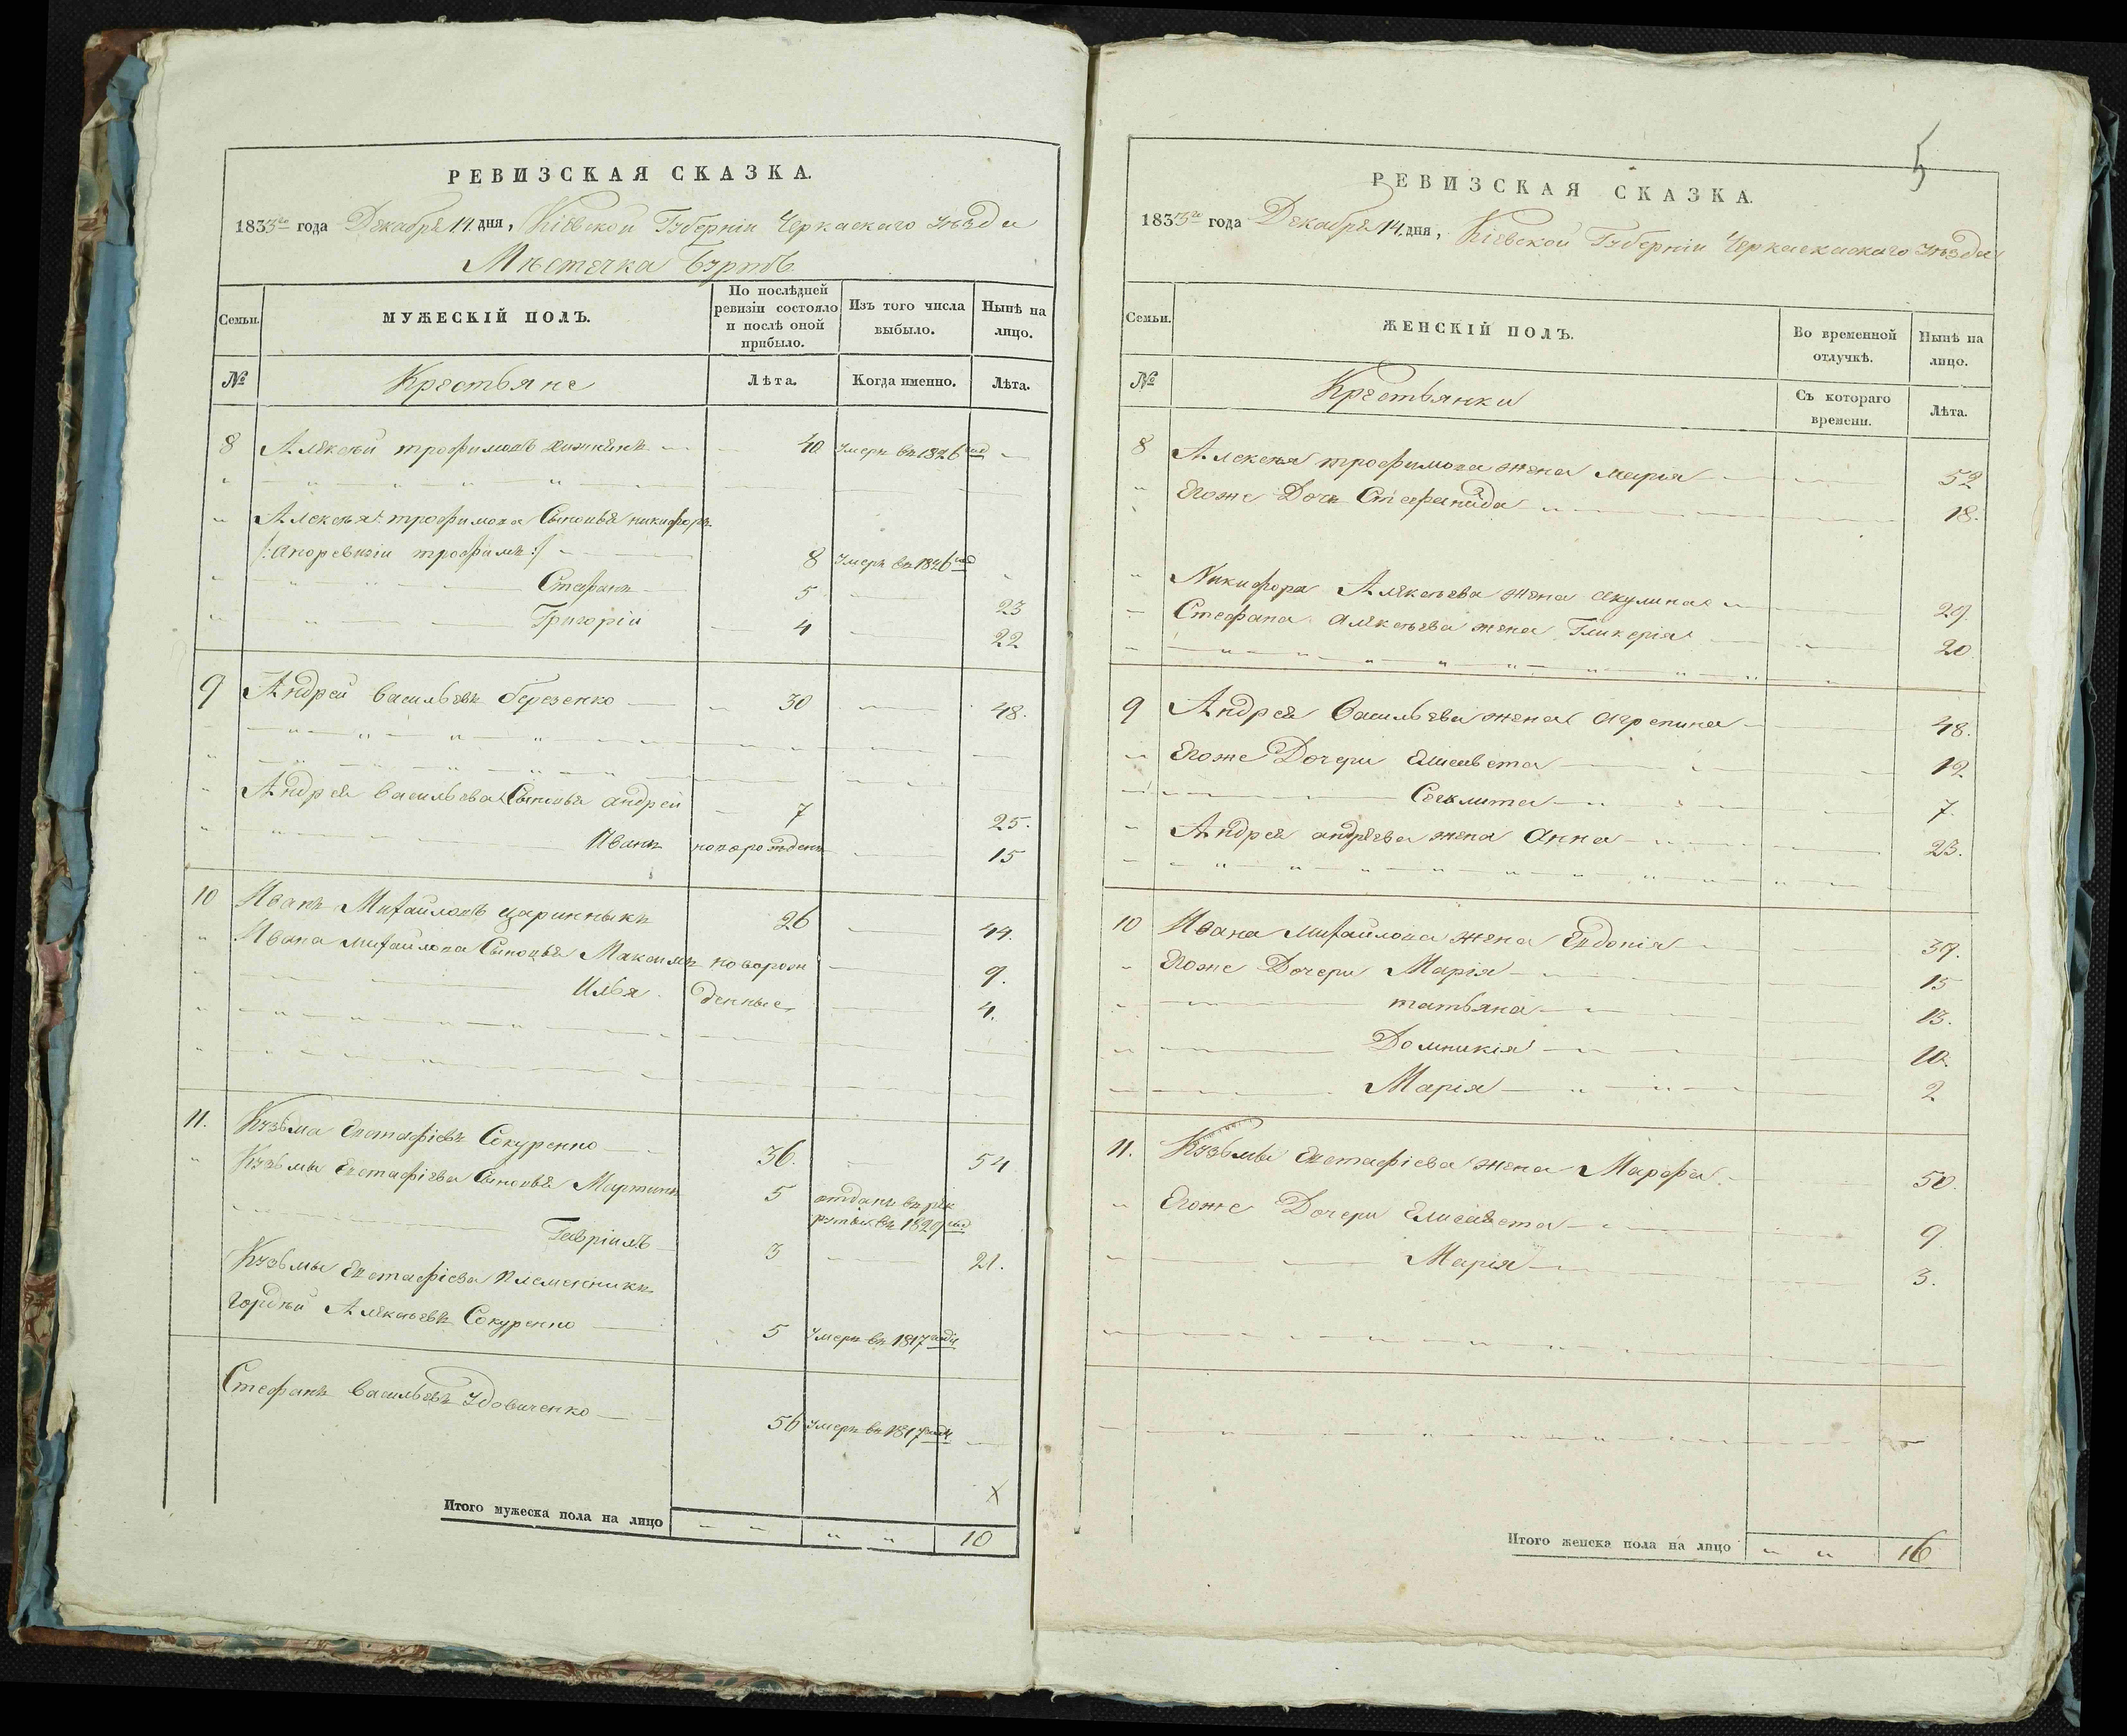 РЕВИЗСКАЯ СКАЗКА.
1833го года Декабря 14 дня, Кіевской Губерніи Черкаскаго уѣзда
Мѣстечка Буртъ
Семьи.
МУЖЕСКІЙ ПОЛЪ.
По послѣдней ревизіи состояло и послѣ оной прибыло.
Изъ того числа выбыло.
Нынѣ на лицо.
№
Крестьяне
Лѣта.
Когда именно.
Лѣта.
8 Алексѣй трофимовъ 40 умеръ въ 1826 год
Алексѣя трофимова Сыновья никифоръ
/:апоревизіи трофимъ:/ 8 умеръ въ 1826 год
Стефанъ 5 23
Григорій 4 22
9 Андрей васильевъ березенко 30 48.
Андрея васильева Сыновья андрей 7 25.
Иванъ новорожденъ 15
10 Иванъ Михайловъ царинныкъ 26 44.
Ивана михайлова Сыновья Максимъ новорож 9.
Илья денные 4.
11. Кузьма Евстафіевъ Сокуренко 36. 54
Кузьмы Евстафіева Сыновья Мартинъ 5 отданъ въ рек
руты въ 1829 год
Гавріилъ 3 21.
Кузьмы Евстафіева племенникъ
Гордѣй Алексѣевъ Сокуренко 5 умеръ въ 1817 году
Стефанъ васильевъ Удовиченко 56 умеръ въ 1817 году
Х
Итого мужеска пола на лицо 10
5
РЕВИЗСКАЯ СКАЗКА.
1833го года Декабря 14. дня, Кіевской Губерніи Черкаскаскаго уѣзда
Семьи.
ЖЕНСКІЙ ПОЛЪ.
Во временной отлучкѣ.
Нынѣ на лицо.
№
Крестьянки
Съ котораго времени.
Лѣта.
8 Алексея трофимова жена марія 52
Егоже Дочь Стефанида 18.
Никифора Алексѣева жена акулина 29.
Стефана алексѣева жена Гликерія 20.
9 Андрея Васильева жена агрепина 48.
Егоже Дочери Елисавета 12
7.
Андрея андреева жена Анна 23.
10 Ивана михайлова жена Евдокія 39.
Егоже Дочери Марія 15
татьяна 13.
Домникія 10.
Марія 2
11. Кузьмы Евстафіева жена Марфа. 50.
Егоже Дочери Елисавета 9
Марія 3.
Итого женска пола на лицо 16